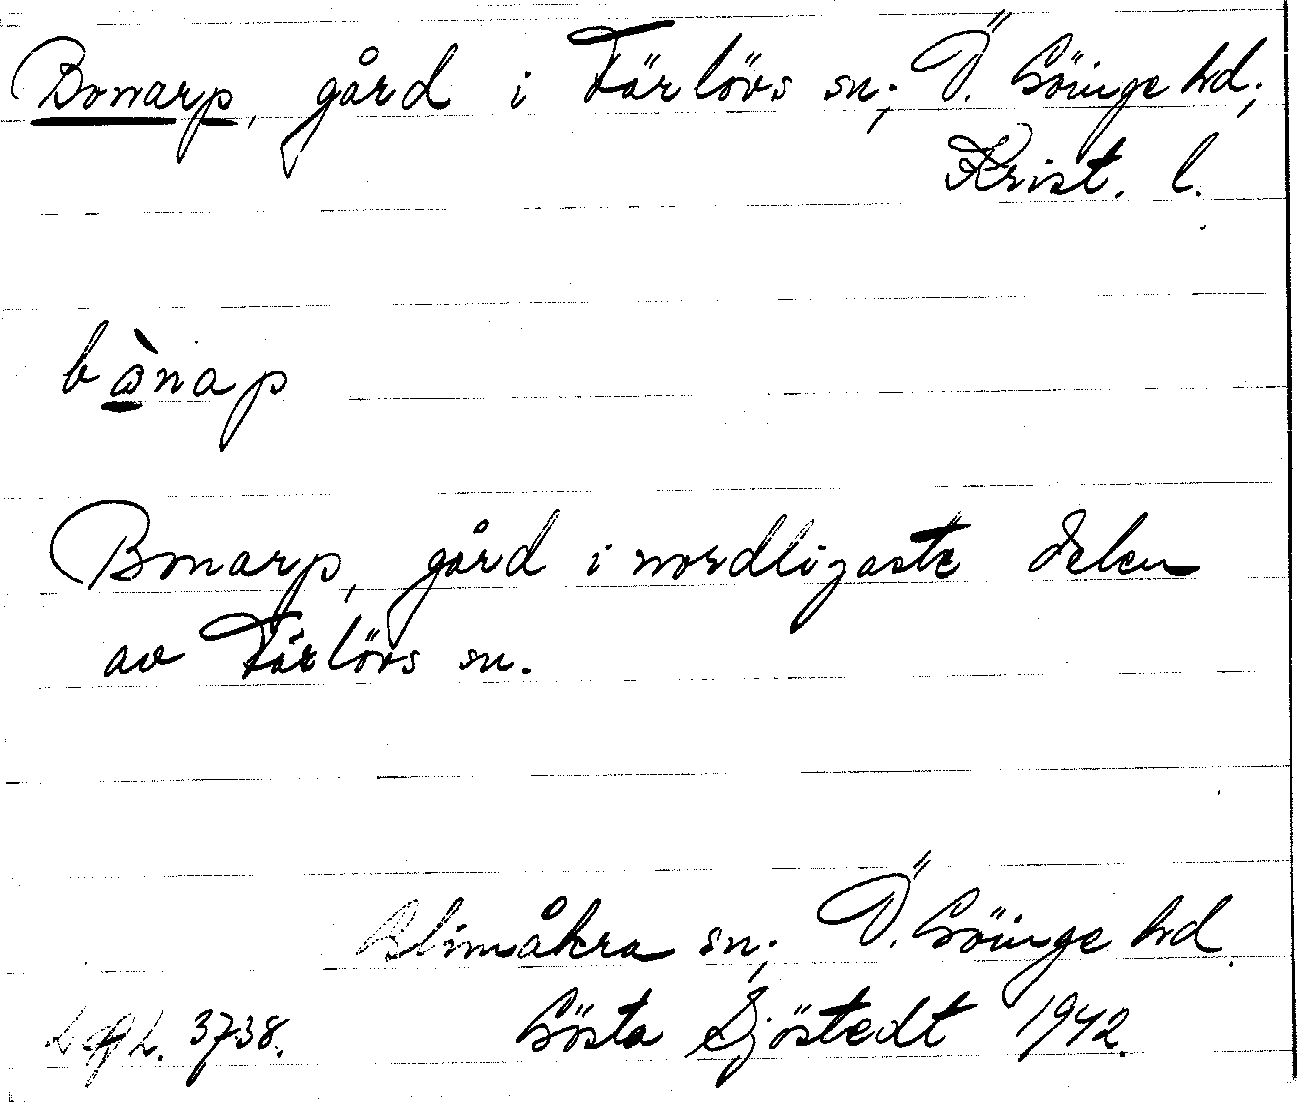 Bonarp, gård i Färlövs sn; Ö. Göinge hd;
Krist. l.
bànap
Bonarp, gård i nordligaste delen
av Färlövs sn.
Glimåkra sn; Ö. Göinge hd.
3738. Gösta Sjöstedt 1942.